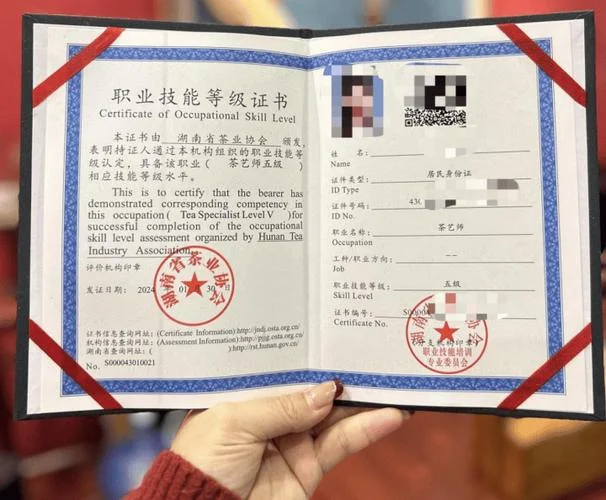 职业技能等级证书
Certificate of Occupational Skill Level
本证书由 湖南省茶业协会 颁发,
表明持证人通过本机构组织的职业技能等
级认定，具备该职业( 茶艺师五级 )
相应技能等级水平。
This is to certify that the bearer has
demonstrated corresponding competency in
this occupation ( Tea Specialist Level V )for
successful completion of the occupational
skill level assessment organized by Hunan Tea
Industry Association.
评价机构印章
湖南省茶业协会
发证日期: 2024 01 30日
证书信息查询网址: (Certificate Information):http://jndj.osta.org.cn/
机构信息查询网址: (Assessment Information):http://pjjg.osta.org.cn/
湖南省查询网址: ( http://rst.hunan.gov.cn/
No. S000043010021
姓 名:
Name
证件类型: 居民身份证
ID Type
证件号码: 430
ID No.
职业名称: 茶艺师
Occupation
工种/职业方向: --
Job
职业技能等级: 五级
Skill Level
证书编号: S0000
Certificate No.
(分支机构印章)
职业技能培训
专业委员会